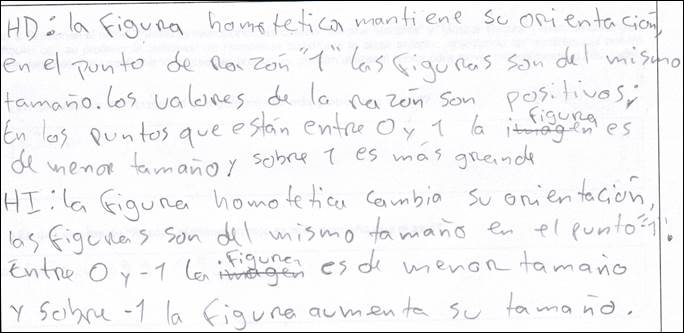 HD: la figura homotetica mantiene su orientación,
en el punto de razón "1" las figuras son del mismo
tamaño. los valores de la razón son positivos;
En los puntos que están entre 0 y 1 la imagen figura es
de menor tamaño y sobre 1 es más grande
HI: la figura homotetica cambia su orientación,
las figuras son del mismo tamaño en el punto "-1".
Entre 0 y -1 la imagen figura es de menor tamaño
y sobre -1 la figura aumenta su tamaño.